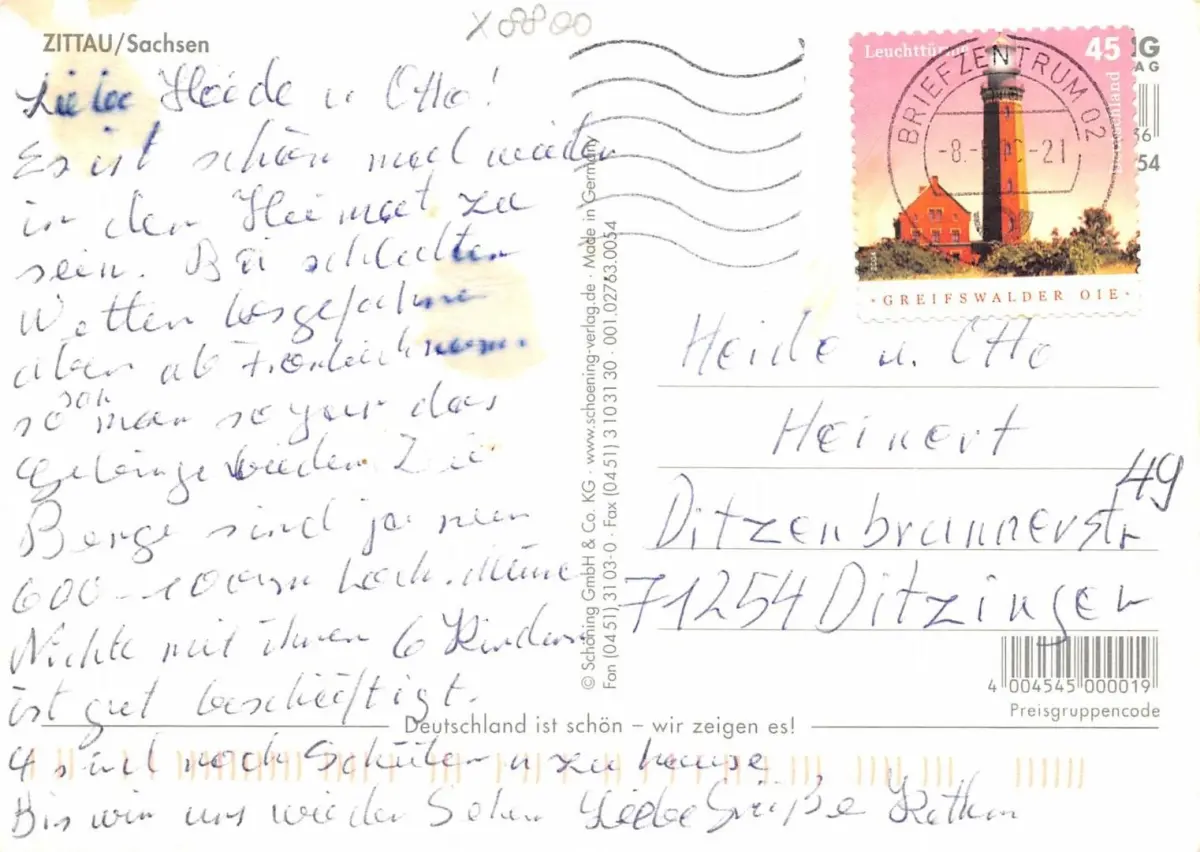 X 8800
ZITTAU/Sachsen
Liebe Heide u Otto!
Es ist schön mal wieder
in der Heimat zu
sein. Bei schlechten
Wetter losgefahren
aber ab
so sah man sogar das
Gebirge wieder. Die
Berge sind ja nur
600-1000m hoch. Meine
Nichte mit ihren 6 Kindern
ist gut beschäftigt.
4 sind noch Schüler u zu hause
Bis wir uns wieder Sehen Liebe Grüße
© Schöning GmbH & Co. KG · www.schoening-verlag.de · Made in Germany
Fon (0451) 3103-0 · Fax (0451) 3103130 · 001.02763.0054
Leuchttürme
45
Deutschland
BRIEFZENTRUM 02
-21
2004
·GREIFSWALDER OIE·
G
AG
36
54
Heide u. Otto
Heinert
Ditzenbrunnerstr
49
71254 Ditzingen
4 004545 000019
Preisgruppencode
Deutschland ist schön – wir zeigen es!